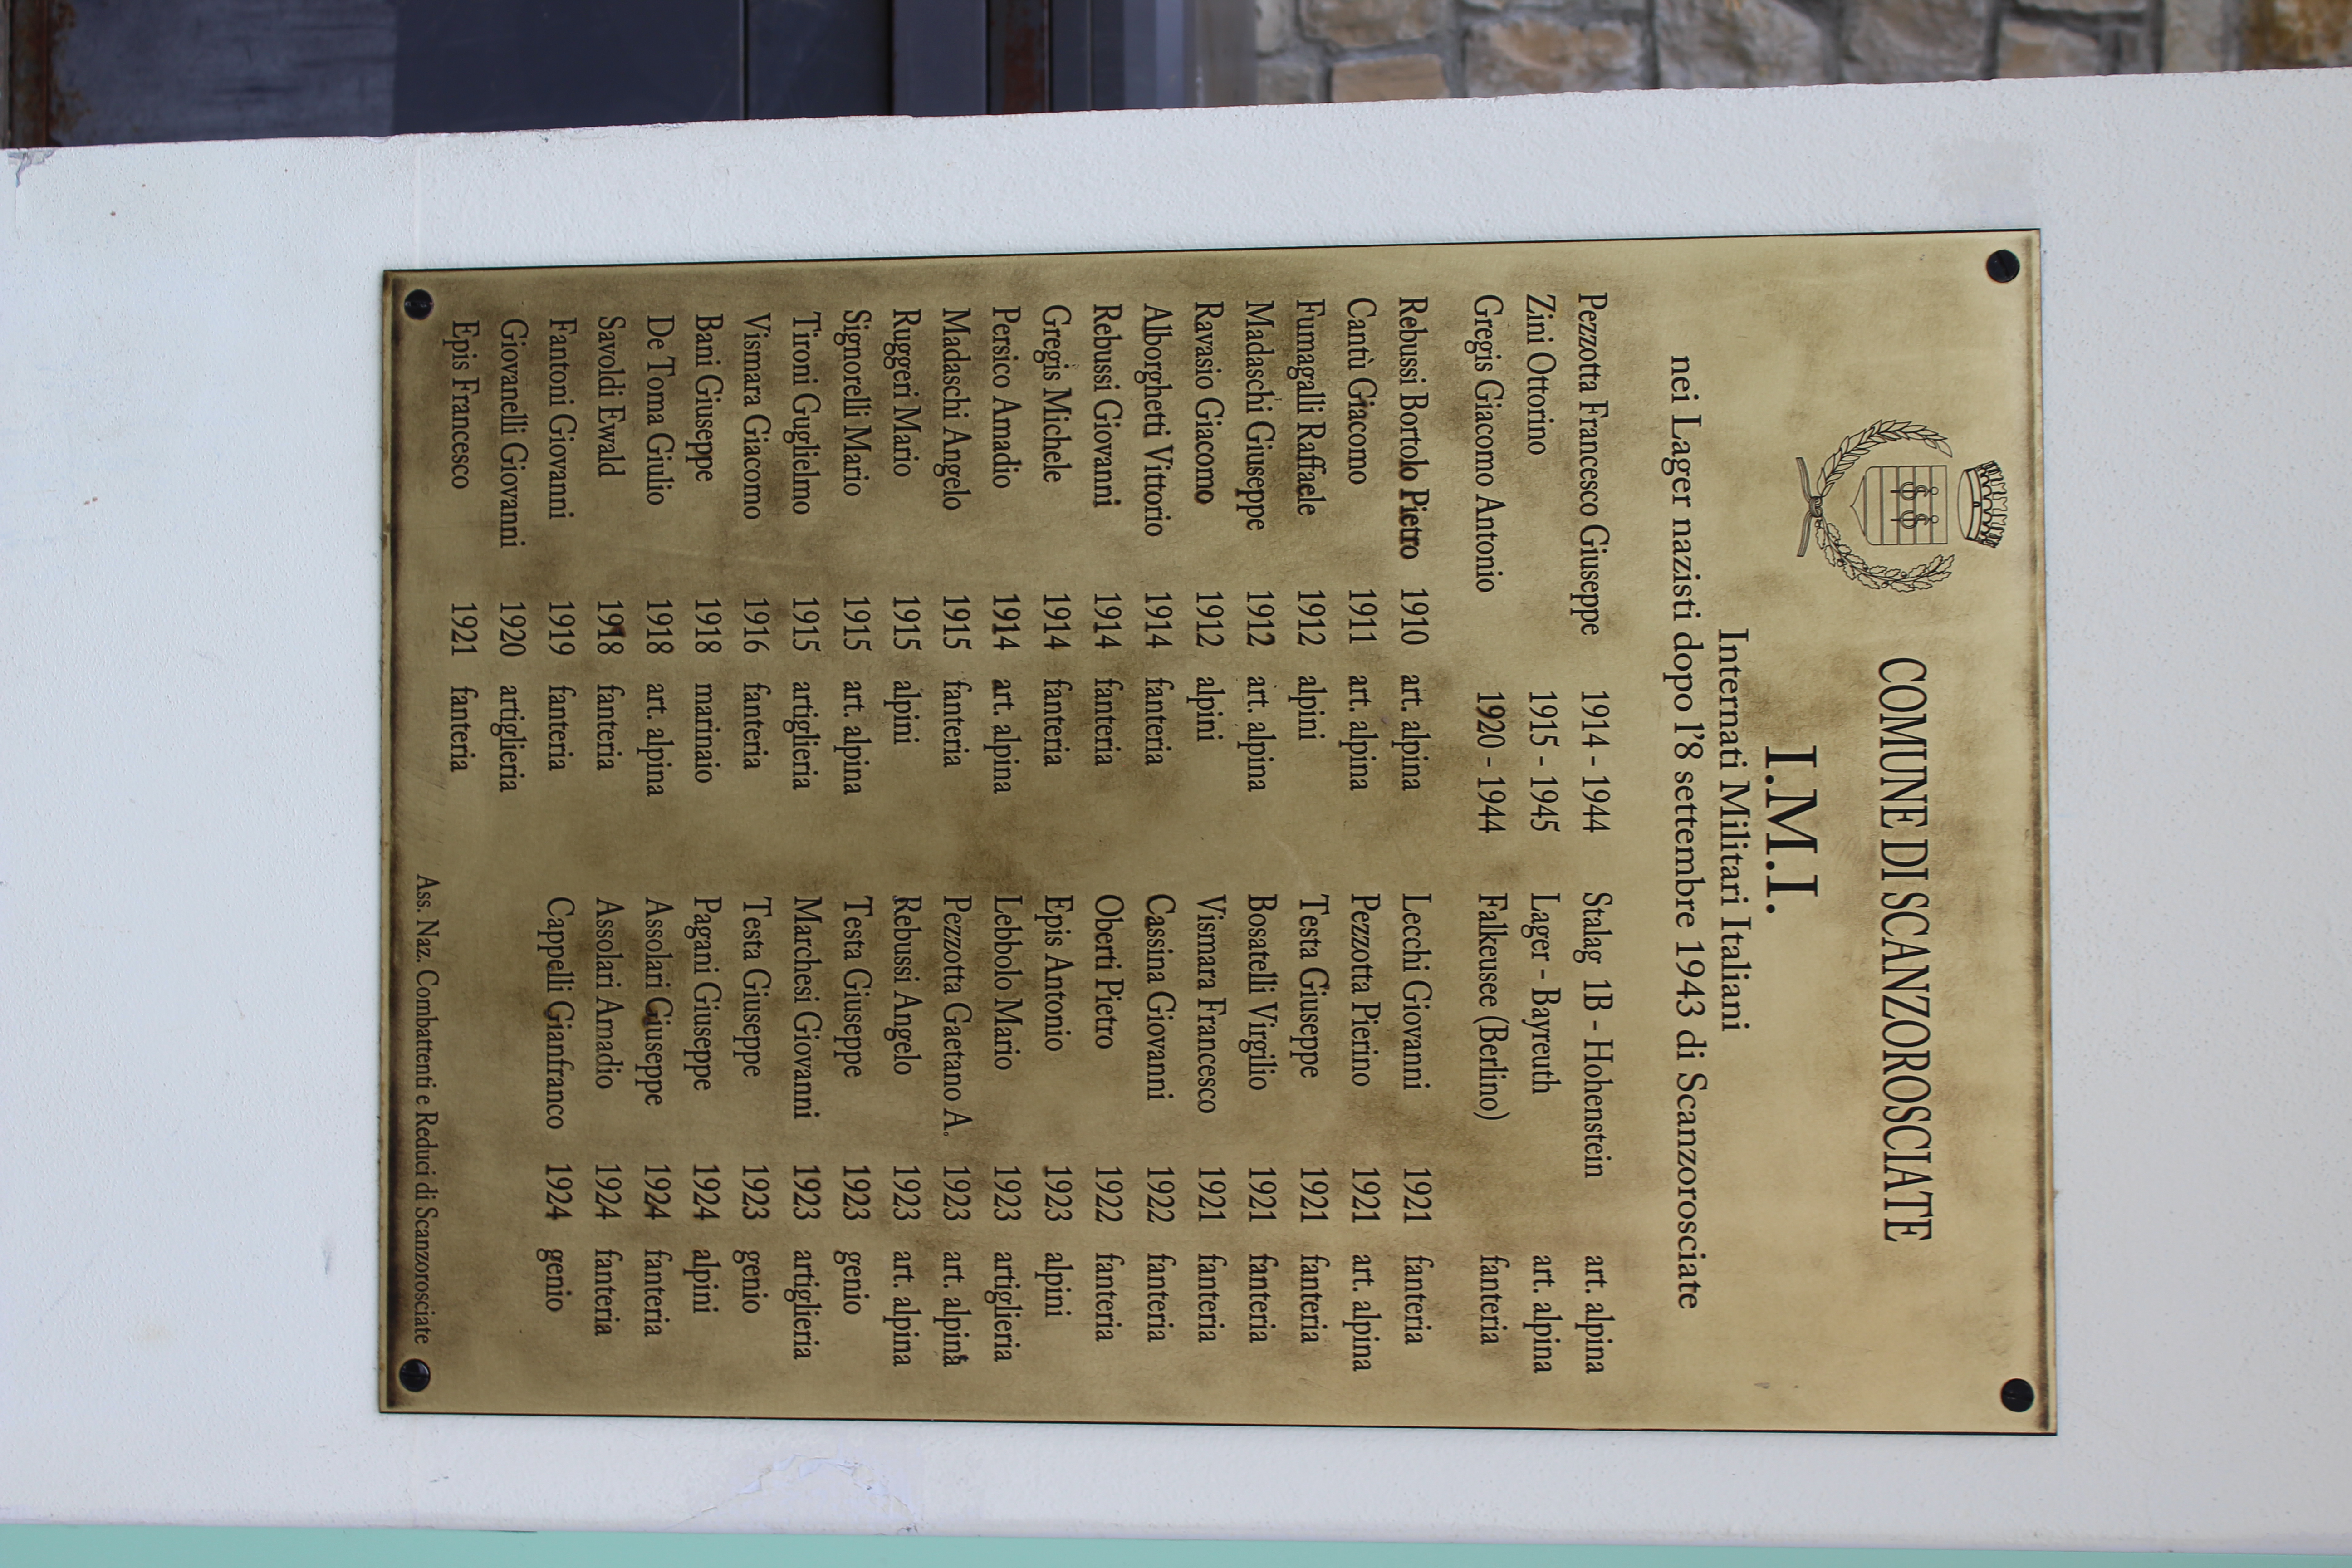 COMUNE DI SCANZOROSCIATE
I.M.I.
Internati Militari Italiani
nei Lager nazisti dopo l'8 settembre 1943 di Scanzorosciate
Pezzotta Francesco Giuseppe 1914 - 1944 Stalag 1B - Hohenstein art. alpina
Zini Ottorino 1915 - 1945 Lager - Bayreuth art. alpina
Gregis Giacomo Antonio 1920 - 1944 Falkeusee (Berlino) fanteria
Rebussi Bortolo Pietro 1910 art. alpina
Cantù Giacomo 1911 art. alpina
Fumagalli Raffaele 1912 alpini
Madaschi Giuseppe 1912 art. alpina
Ravasio Giacomo 1912 alpini
Alborghetti Vittorio 1914 fanteria
Rebussi Giovanni 1914 fanteria
Gregis Michele 1914 fanteria
Persico Amadio 1914 art. alpina
Madaschi Angelo 1915 fanteria
Ruggeri Mario 1915 alpini
Signorelli Mario 1915 art. alpina
Tironi Guglielmo 1915 artiglieria
Vismara Giacomo 1916 fanteria
Bani Giuseppe 1918 marinaio
De Toma Giulio 1918 art. alpina
Savoldi Ewald 1918 fanteria
Fantoni Giovanni 1919 fanteria
Giovanelli Giovanni 1920 artiglieria
Epis Francesco 1921 fanteria
Lecchi Giovanni 1921 fanteria
Pezzotta Pierino 1921 art. alpina
Testa Giuseppe 1921 fanteria
Bosatelli Virgilio 1921 fanteria
Vismara Francesco 1921 fanteria
Cassina Giovanni 1922 fanteria
Oberti Pietro 1922 fanteria
Epis Antonio 1923 alpini
Lebbolo Mario 1923 artiglieria
Pezzotta Gaetano A. 1923 art. alpina
Rebussi Angelo 1923 art. alpina
Testa Giuseppe 1923 genio
Marchesi Giovanni 1923 artiglieria
Testa Giuseppe 1923 genio
Pagani Giuseppe 1924 alpini
Assolari Giuseppe 1924 fanteria
Assolari Amadio 1924 fanteria
Cappelli Gianfranco 1924 genio
Ass. Naz. Combattenti e Reduci di Scanzorosciate